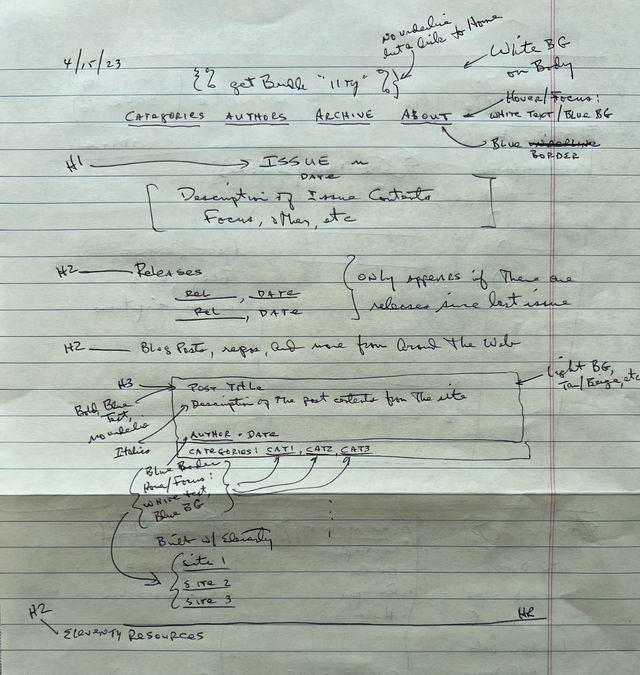 No underline
but a link to Home
4/15/23
{% getBundle "11ty" %}
White BG
on Body
CATEGORIES AUTHORS ARCHIVE ABOUT
Hover/Focus:
WHITE TEXT/BLUE BG
BLUE UNDERLINE
BORDER
H1
ISSUE n
DATE
Description of Issue Contents
Focus, other, etc
H2 Releases
REL, DATE
REL, DATE
only appears if there are
releases since last issue
H2 Blog Posts, repos, and more from Around The Web
H3 POST TITLE
Light BG,
Tan/Beige, etc
Bold, Blue
Text,
no underline
Description of The post contents from The site
Italics
AUTHOR · DATE
CATEGORIES: CAT1, CAT2, CAT3
Blue Border
Hover/Focus:
White Text,
Blue BG
Built w/ Eleventy
Site 1
Site 2
Site 3
H2
HR
Eleventy Resources